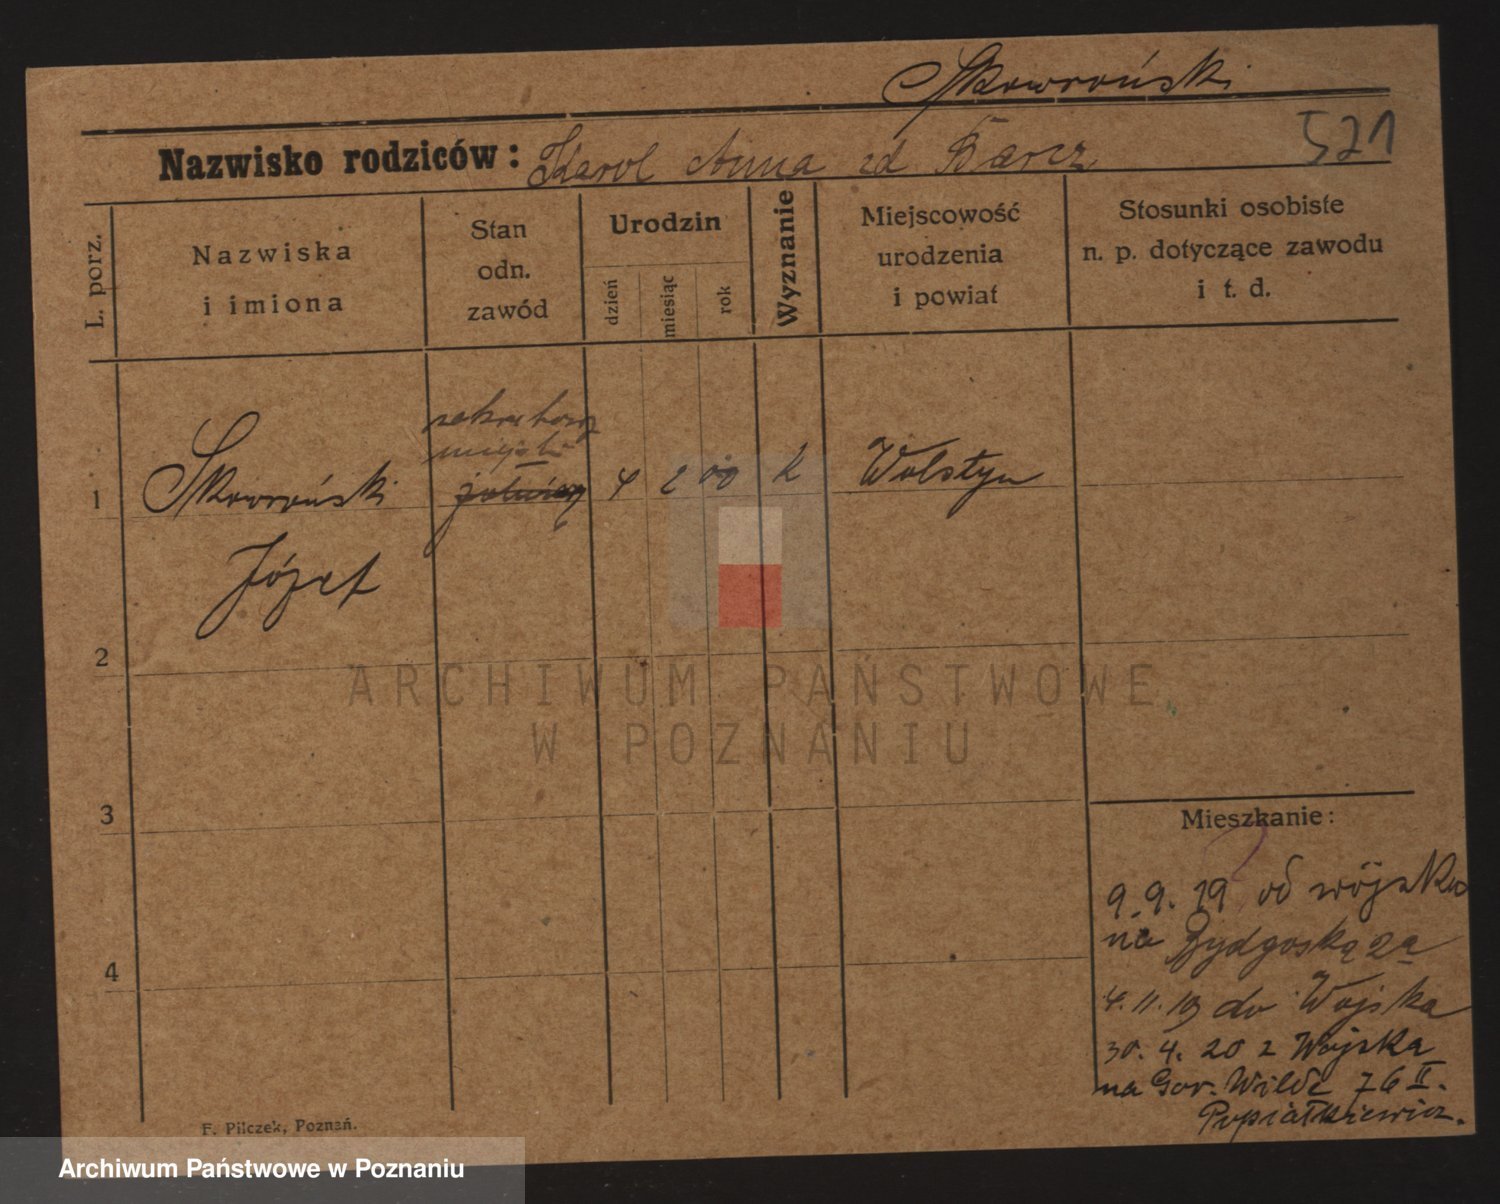 Skowroński
Nazwisko rodziców: Karol Anna zd Barcz
521
L. porz.
Nazwiska
i imiona
Stan
odn.
zawód
Urodzin
dzień
miesiąc
rok
Wyznanie
Miejscowość
urodzenia
i powiat
Stosunki osobiste
n. p. dotyczące zawodu
i t. d.
miejski
1 Skowroński żołnierz 4 2 00 k Wolsztyn
Józef
2
3
4
Mieszkanie:
9.9.19 od wojska
na Bydgoską 2a
4.11.19 do Wojska
30.4.20 z Wojska
na Gór. Wilde 76 II.
Popiałkiewicz.
F. Pilczek, Poznań.
ARCHIWUM PAŃSTWOWE
W POZNANIU
Archiwum Państwowe w Poznaniu